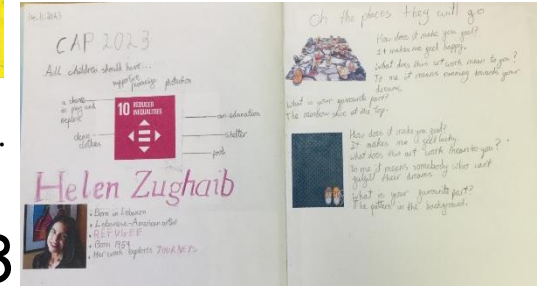 CAP 2023
All children should have...
supportive
protection
a chance
to play and
explore
clean
clothes
10 REDUCED
INEQUALITIES
an education
shelter
food
Helen Zughaib
• Born in Lebanon
• Lebanese-American artist
• REFUGEE
• Born 1959
• Her work explores JOURNEYS
Oh the places they will go
How does it make you feel?
It makes me feel happy.
What does this art work mean to you?
To me it means running towards your
dreams.
What is your favourite part?
The rainbow shoe at the top.
How does it make you feel?
It makes me feel
What does this art work mean to you?
To me it means somebody who can't
fulfill their dreams.
What is your favourite part?
The pattern in the background.